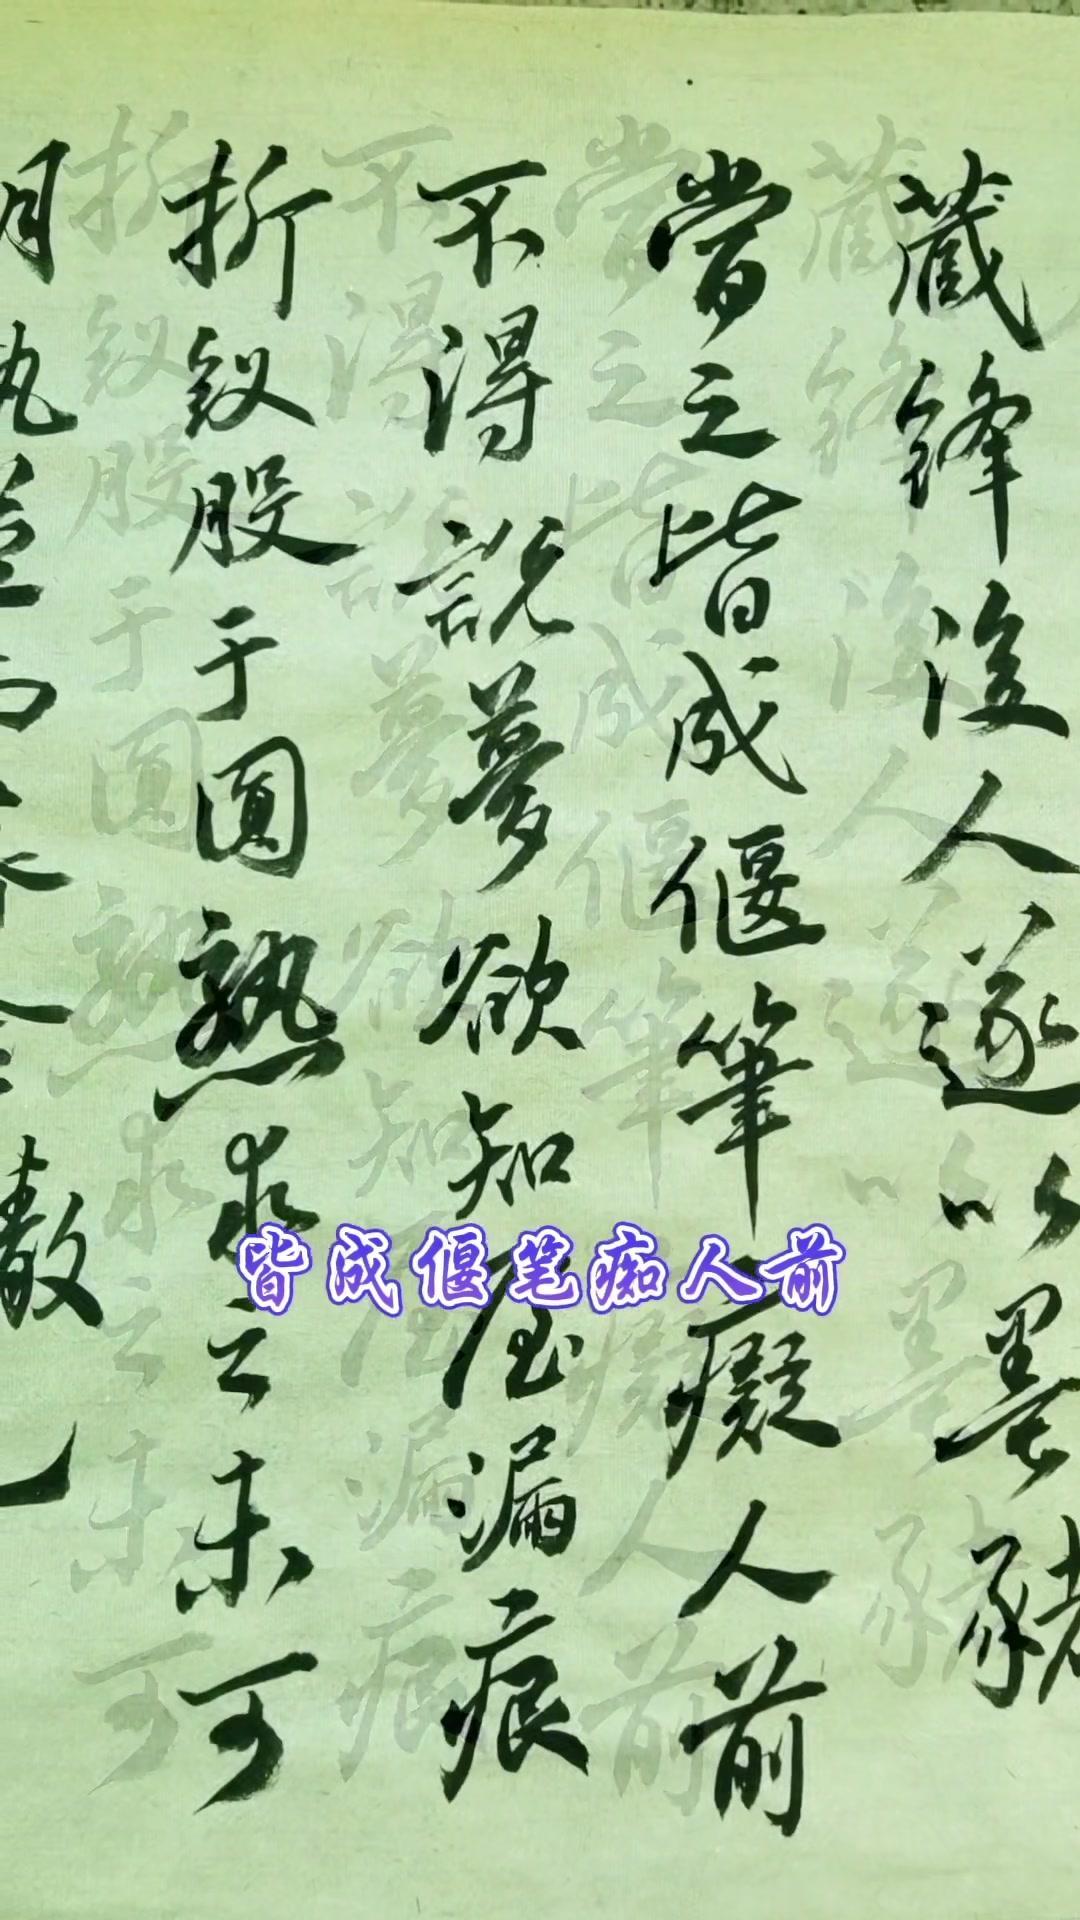 藏鋒後人遂以墨豬
當之皆成偃筆癡人前
不得說夢欲知屋漏痕
折釵股于圓熟求之未可
皆成偃笔痴人前